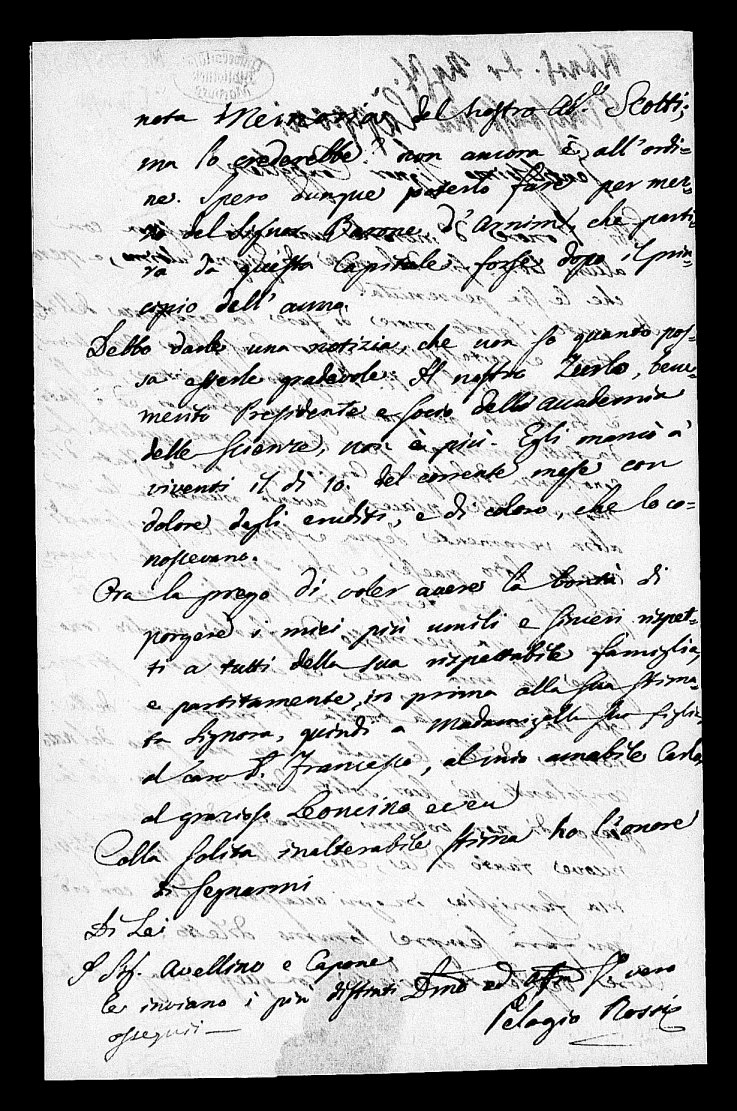 nota Memoria del nostro Ab.e Scotti;
ma lo crederebbe? non ancora è all'ordi-
ne. Spero dunque poterlo fare per mez-
zo del Signor Barone d'Arnim, che parti-
rà da questa Capitale forse dopo il prin-
cipio dell'anno.
Debbo darle una notizia, che non so quanto pos-
sa esserle gradevole. Il nostro Zurlo, bene-
merito Presidente e socio dell'accademia
delle Scienze, non è più. Egli mancò a'
viventi il dì 10. del corrente mese con
dolore degli eruditi, e di coloro, che lo co-
noscevano.
Ora la prego di voler avere la bontà di
porgere i miei più umili e sinceri rispet-
ti a tutti della sua rispettabile famiglia,
e partitamente, in prima alla sua stima-
ta Signora, quindi a Madamigella sua figlia,
al caro D. Francesco, al mio amabile Carlo,
al grazioso Leoncino
Colla solita inalterabile stima ho l'onore
di segnarmi
Di Lei
I Sig.i Avellino e Capone
le inviano i più distinti
ossequii —
Dmo ed vero
Pelagio Rossi